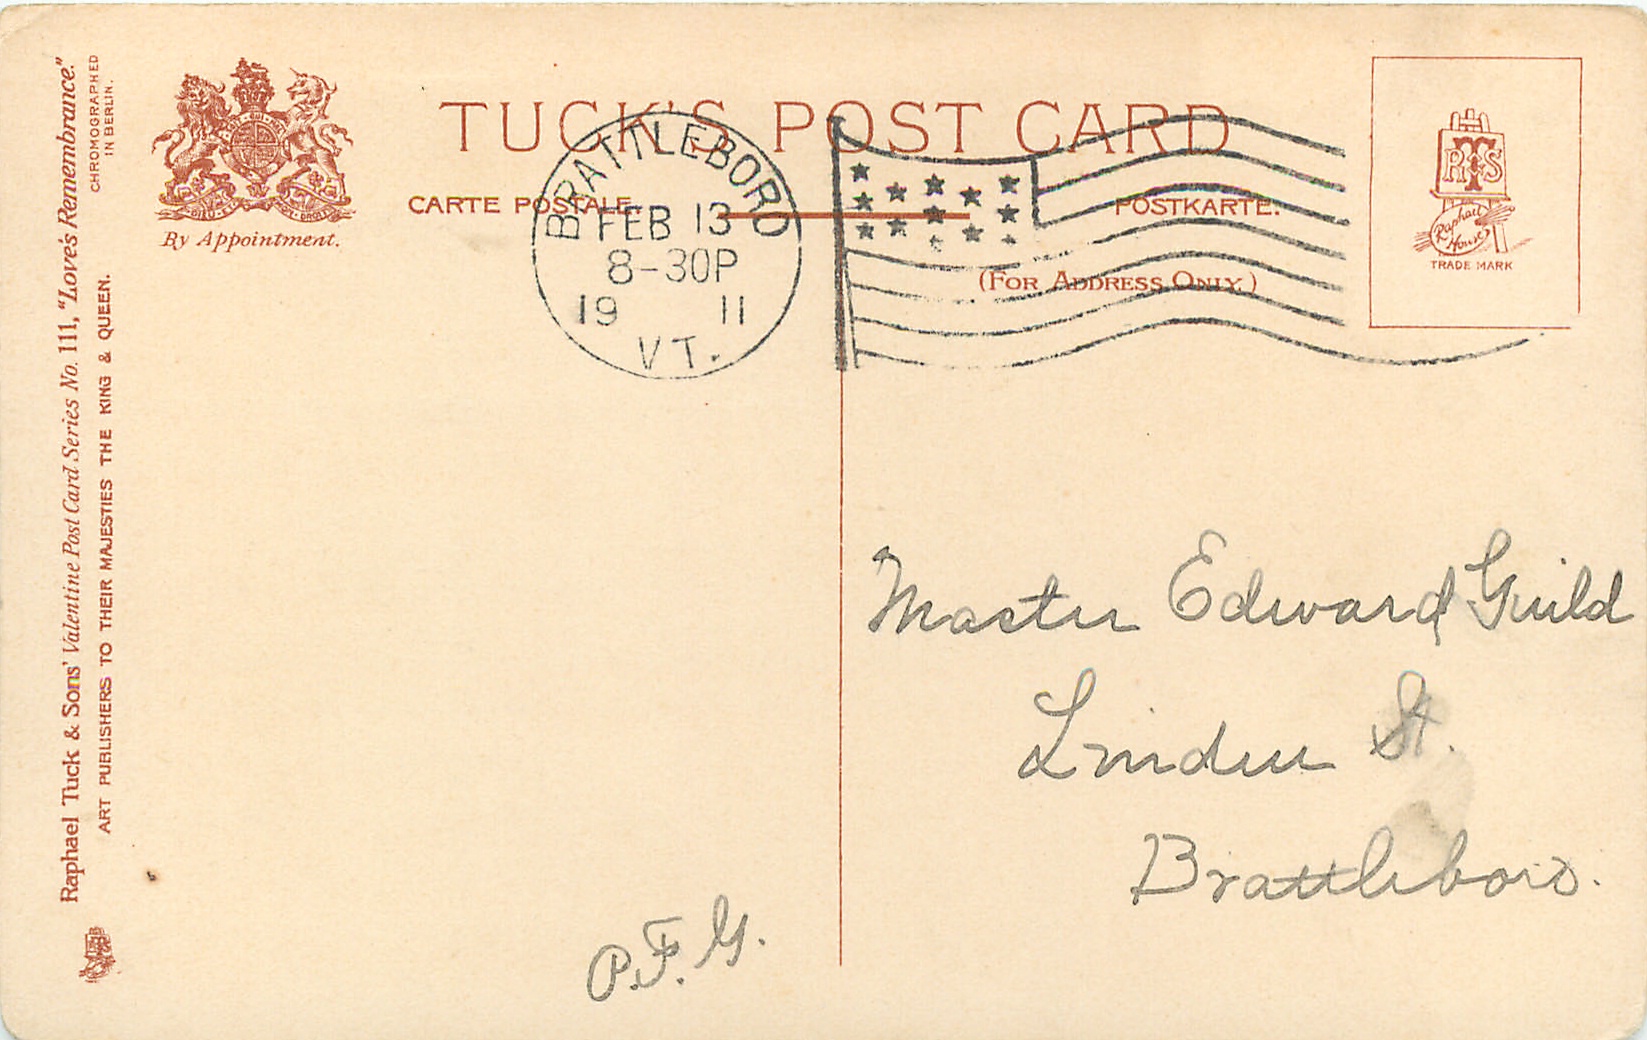 Raphael Tuck & Sons' Valentine Post Card Series No. 111, "Love's Remembrance."
ART PUBLISHERS TO THEIR MAJESTIES THE KING & QUEEN.
CHROMOGRAPHED
IN BERLIN.
By Appointment.
TUCK'S POST CARD
CARTE POSTALE
POSTKARTE.
(FOR ADDRESS ONLY.)
BRATTLEBORO
FEB 13
8-30P
19 11
VT.
RTS
Raphael
House
TRADE MARK
Master Edward Guild
Linden St.
Brattleboro.
P.F.G.